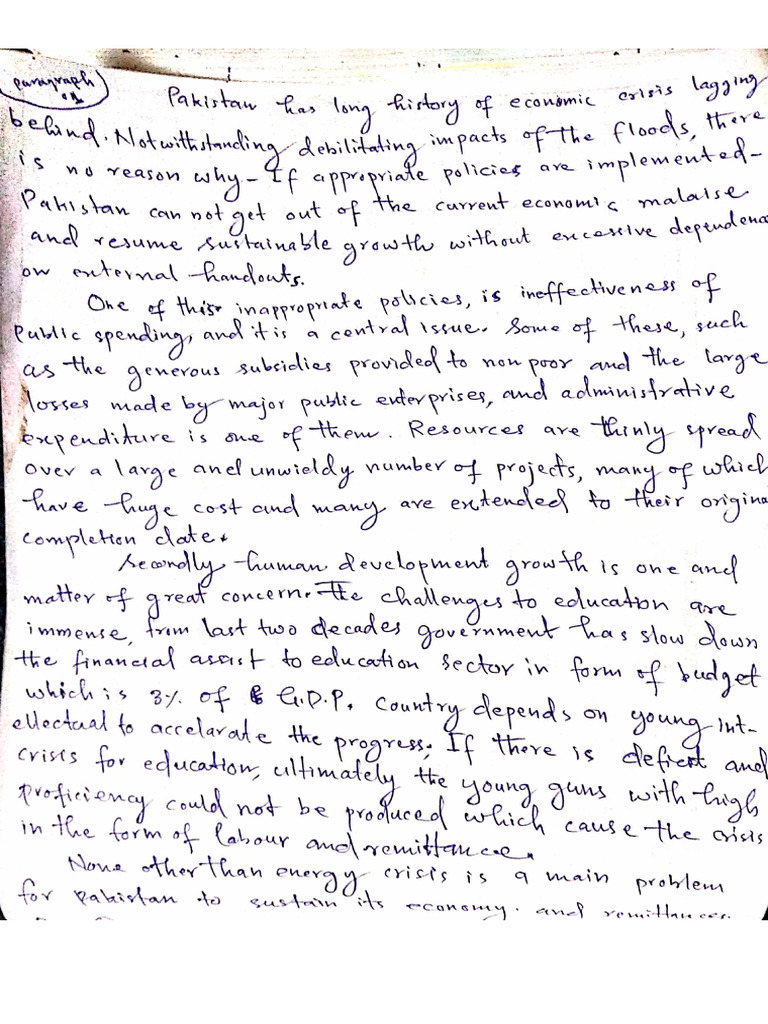 paragraph
01
Pakistan has long history of economic crisis lagging
behind. Notwithstanding debilitating impacts of the floods, there
is no reason why - If appropriate policies are implemented -
Pakistan can not get out of the current economic malaise
and resume sustainable growth without excessive dependence
on external handouts.
One of this inappropriate policies, is ineffectiveness of
Public spending, and it is a central issue. Some of these, such
as the generous subsidies provided to non poor and the large
losses made by major public enterprises, and administrative
expenditure is one of them. Resources are thinly spread
over a large and unwieldy number of projects, many of which
have huge cost and many are extended to their original
completion date.
Secondly human development growth is one and
matter of great concern. The challenges to education are
immense, from last two decades government has slow down
the financial assist to education sector in form of budget
which is 3% of G.D.P. Country depends on young int-
ellectual to accelarate the progress. If there is deficit and
crisis for education, ultimately the young guns with high
proficiency could not be produced which cause the crisis
in the form of labour and remittance.
None other than energy crisis is a main problem
for Pakistan to sustain its economy. and remittances.